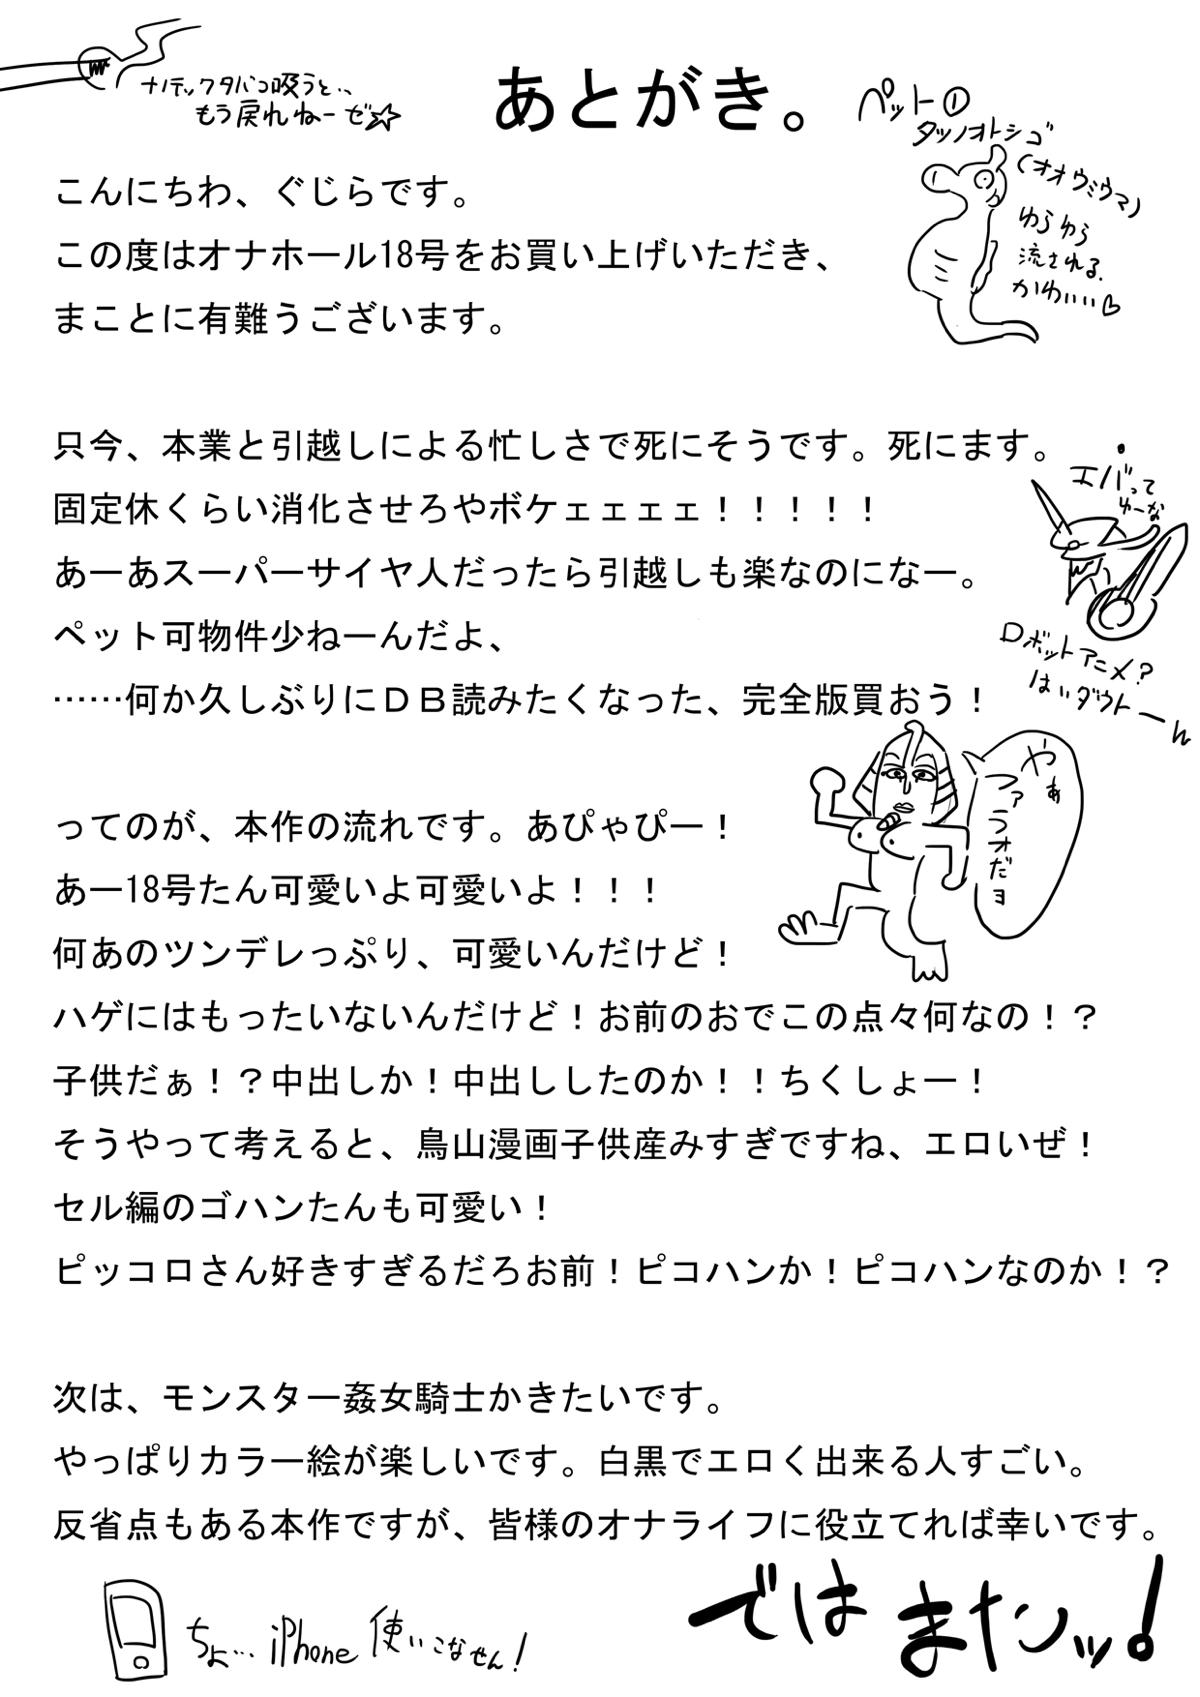 ナノテックタバコ吸うと…
もう戻れねーぜ☆
あとがき。
ペット①
タツノオトシゴ
(オオウミウマ)
ゆらゆら
流される。
かわいい♡
こんにちわ、ぐじらです。
この度はオナホール18号をお買い上げいただき、
まことに有難うございます。
只今、本業と引越しによる忙しさで死にそうです。死にます。
固定休くらい消化させろやボケェェェェ！！！！！
あーあスーパーサイヤ人だったら引越しも楽なのになー。
ペット可物件少ねーんだよ、
……何か久しぶりにＤＢ読みたくなった、完全版買おう！
エバって
ゆーな
ロボットアニメ?
はいダウトーん
ってのが、本作の流れです。あぴゃぴー！
あー18号たん可愛いよ可愛いよ！！！
何あのツンデレっぷり、可愛いんだけど！
やぁ
ファラオだヨ
ハゲにはもったいないんだけど！お前のおでこの点々何なの！？
子供だぁ！？中出しか！中出ししたのか！！ちくしょー！
そうやって考えると、鳥山漫画子供産みすぎですね、エロいぜ！
セル編のゴハンたんも可愛い！
ピッコロさん好きすぎるだろお前！ピコハンか！ピコハンなのか！？
次は、モンスター姦女騎士かきたいです。
やっぱりカラー絵が楽しいです。白黒でエロく出来る人すごい。
反省点もある本作ですが、皆様のオナライフに役立てれば幸いです。
ちょ…iPhone使いこなせん!
ではまたンッ!